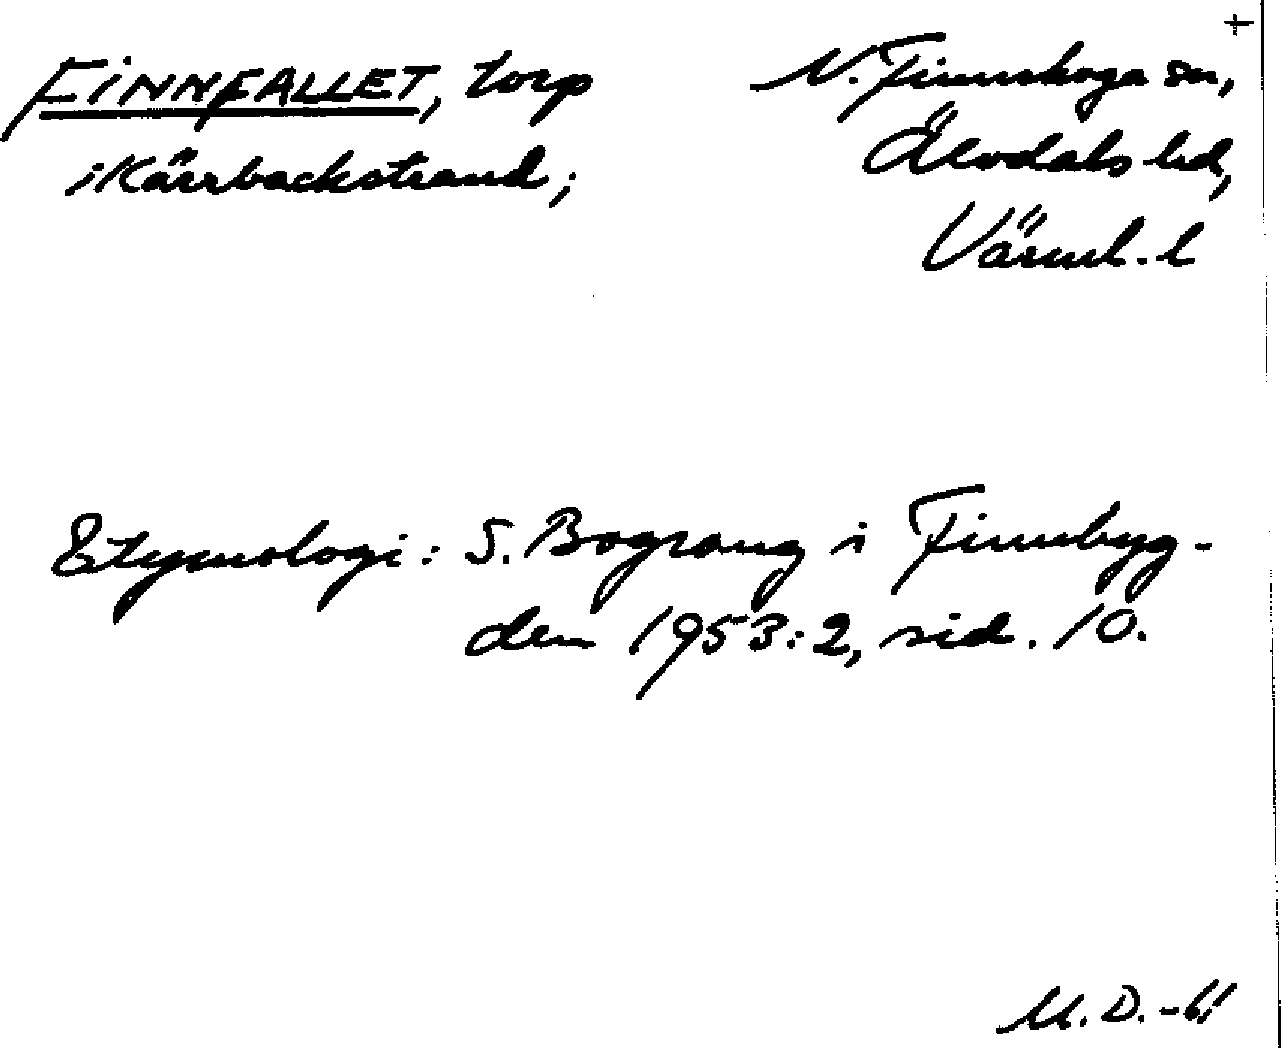 +
FINNFALLET, torp
i Kärrbackstrand;
N. Finnskoga sn,
Älvdals hd,
Värml. l
Etymologi: S. Bograng i Finnbyg-
den 1953:2, sid. 10.
M.D.-61